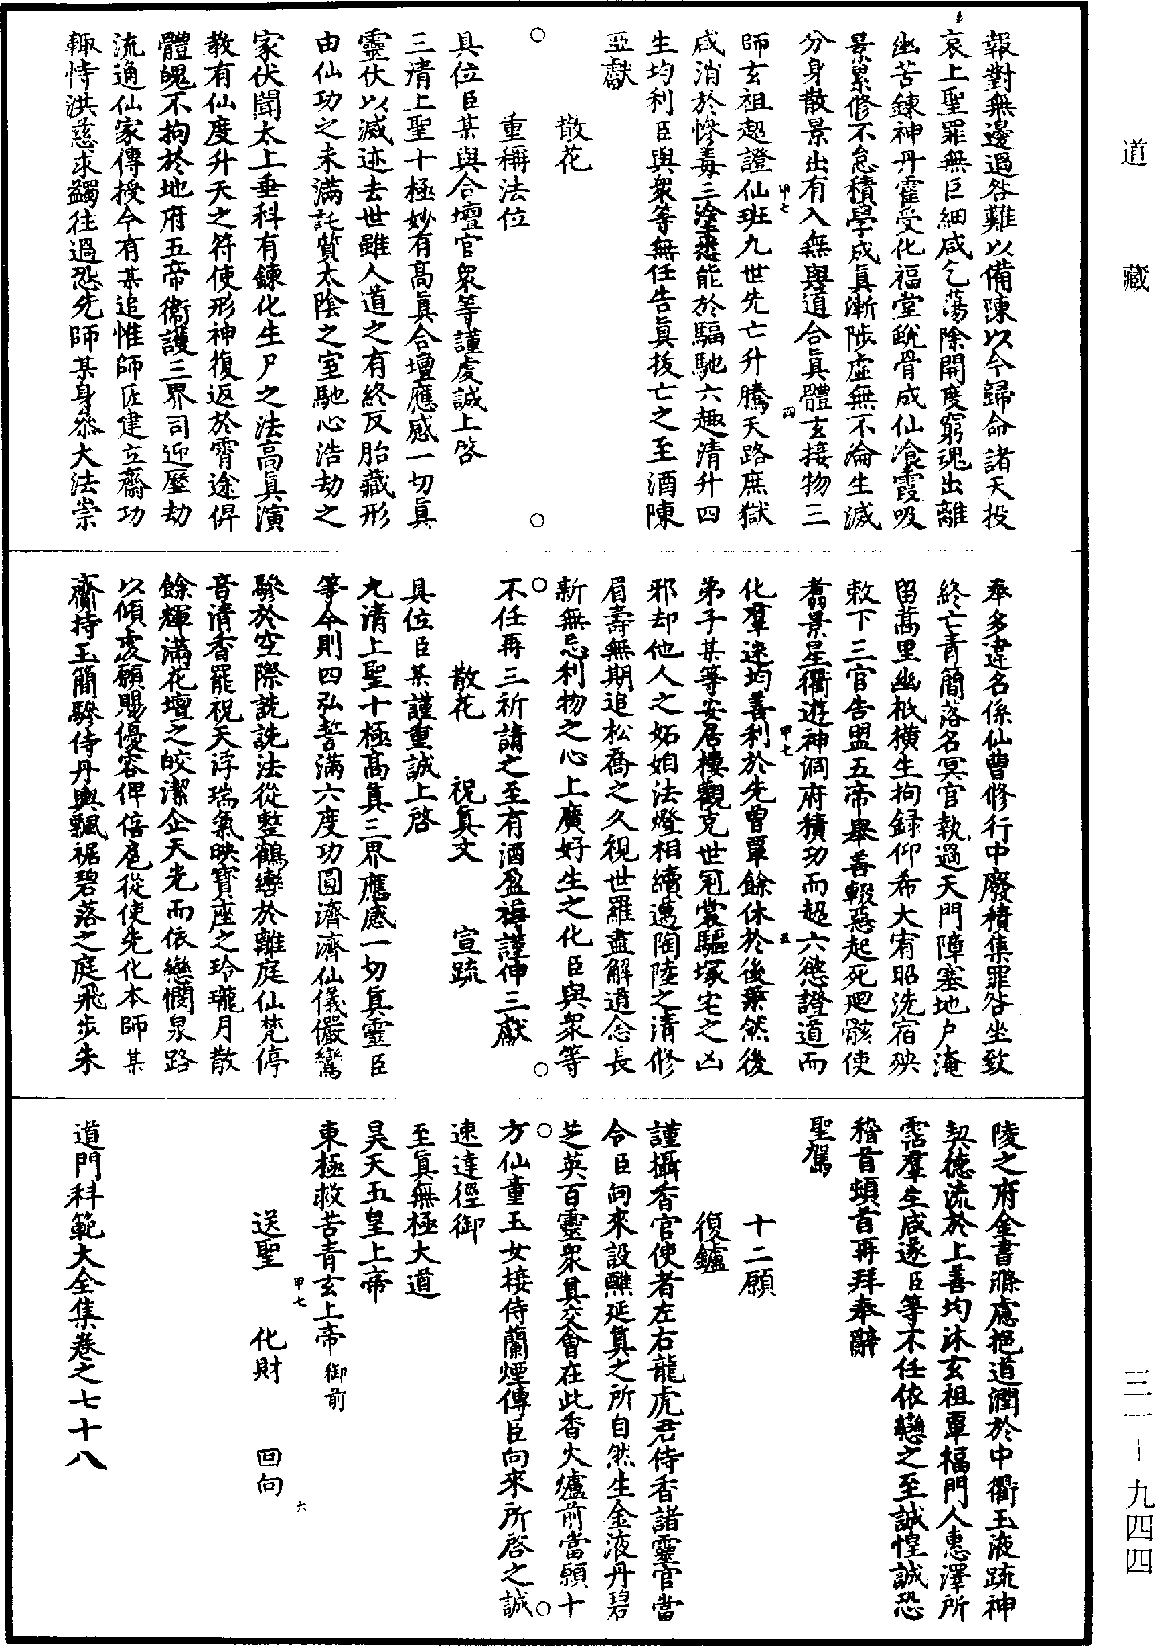 道藏
三一－九四四
報對無邊過咎難以備陳以今歸命諸天投
哀上聖罪無巨細咸乞蕩除開度窮魂出離
幽苦鍊神丹霍受化福堂蛻骨成仙飡霞吸
景累修不怠積學成真漸陟虛無不淪生滅
分身散景出有入無與道合真體玄接物三
甲七
四
師玄祖超證仙班九世先亡升騰天路庶獄
咸消於慘毒三塗悉能於驅馳六趣清升四
生均利臣與衆等無任告真拔亡之至酒陳
亞獻
散花
○○
重稱法位
具位臣某與合壇官衆等謹虔誠上啓
三清上聖十極妙有高真合壇應感一切真
靈伏以滅迹去世雖人道之有終反胎藏形
由仙功之未滿託質太陰之室馳心浩劫之
家伏聞太上垂科有鍊化生尸之法高真演
教有仙度升天之符使形神復返於霄途俾
體魄不拘於地府五帝衛護三界司迎歷劫
流通仙家傳授今有某追惟師匠建立齋功
輙恃洪慈求蠲往過恐先師某身忝大法崇
奉多違名係仙曹修行中廢積集罪咎坐致
終亡青簡落名冥官執過天門障塞地户淹
留萬里幽祇横生拘録仰希大宥昭洗宿殃
敕下三官告盟五帝舉善輟惡起死迴骸使
翥景星衢遊神洞府積功而超六慾證道而
甲七
五
化羣迷均善利於先曾覃餘休於後葉然後
弟子某等安居樓觀克世冠裳驅塚宅之凶
邪却他人之妬姤法燈相續邁陶陸之清修
眉壽無期追松喬之久視世羅盡解道念長
新無忘利物之心上廣好生之化臣與衆等
不任再三祈請之至有酒盈樽謹伸三獻
○○
散花　祝真文　宣疏
具位臣某謹重誠上啓
九清上聖十極高真三界應感一切真靈臣
等今則四弘誓滿六度功圓濟濟仙儀儼鸞
驂於空際詵詵法從整鶴轡於離庭仙梵停
音清香罷祝天浮瑞氣映寶座之玲瓏月散
餘輝滿花壇之皎潔企天光而依戀憫泉路
以傾虔願賜優容俾偣扈從使先化本師某
齋持玉簡驂侍丹輿飄裾碧落之庭飛步朱
陵之府金書滌慮挹道潤於中衢玉液疏神
契德流於上善均沐玄祖覃福門人惠澤所
霑羣生咸遂臣等不任依戀之至誠惶誠恐
稽首頓首再拜奉辭
聖駕
十二願
復鑪
謹攝香官使者左右龍虎君侍香諸靈官當
令臣向來設醮延真之所自然生金液丹碧
芝英百靈衆真交會在此香火爐前當願十
方仙童玉女接侍蘭煙傳臣向來所啓之誠
○○
速達徑御
至真無極大道
昊天玉皇上帝
東極救苦青玄上帝御前
甲七
六
送聖　化財　回向
道門科範大全集卷之七十八